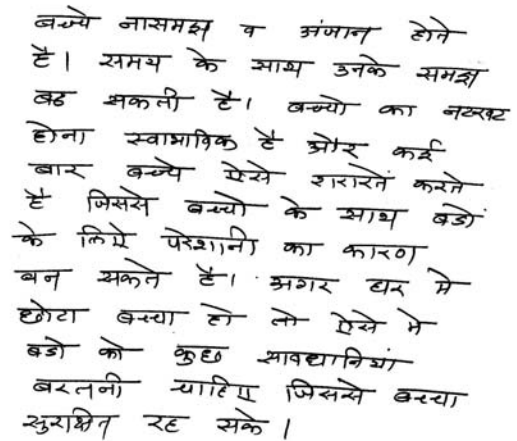 बच्चे नासमझ व अंजान होते
है। समय के साथ उनके समझ
बढ सकती है। बच्चो का नटखट
होना स्वाभाविक है और कई
बार बच्चे ऐसे शरारतें करते
है जिससे बच्चो के साथ बडों
के लिये परेशानी का कारण
बन सकते है। अगर घर मे
छोटा बच्चा हो तो ऐसे मे
बडो को कुछ सावधानियां
बरतनी चाहिए जिससे बच्चा
सुराक्षित रह सके।